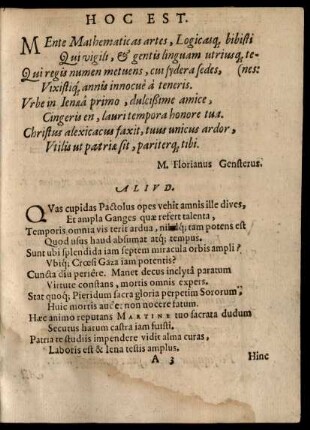 HOC EST.
MEnte Mathematicas artes, Logicasq; bibisti
Qui vigili, & gentis linguam utriusq, te-
Qui regis numen metuens, cui sydera sedes, (nes:
Vixistiq; annis innocuè à teneris.
Vrbe in Ienaâ primo, dulcissime amice,
Cingeris en, lauri tempora honore tua.
Christus alexicacus faxit, tuus unicus ardor,
Vtilis ut patriæ sit, pariterq, tibi.
M. Florianus Gensterus.
ALIVD.
QVas cupidas Pactolus opes vehit amnis ille dives,
Et ampla Ganges quæ refert talenta,
Temporis omnia vis terit ardua, nilq; tam potens est
Quod usus haud absumat atq; tempus.
Sunt ubi splendida iam septem miracula orbis ampli?
Vbiq; Crœsi Gaza iam potentis?
Cuncta diu periére. Manet decus inclytâ paratum
Virtute constans, mortis omnis expers.
Stat quoq; Pieridum sacra gloria perpetim Sororum,
Huic mortis arcê: non nocere fatum.
Hæc animo reputans MARTINE tuo sacrata dudum
Secutus harum castra iam fuisti.
Patria te studiis impendere vidit alma curas,
Laboris est & Iena testis amplus.
A 3
Hinc